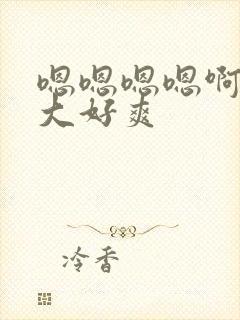 嗯嗯嗯嗯啊
大好爽
冷香